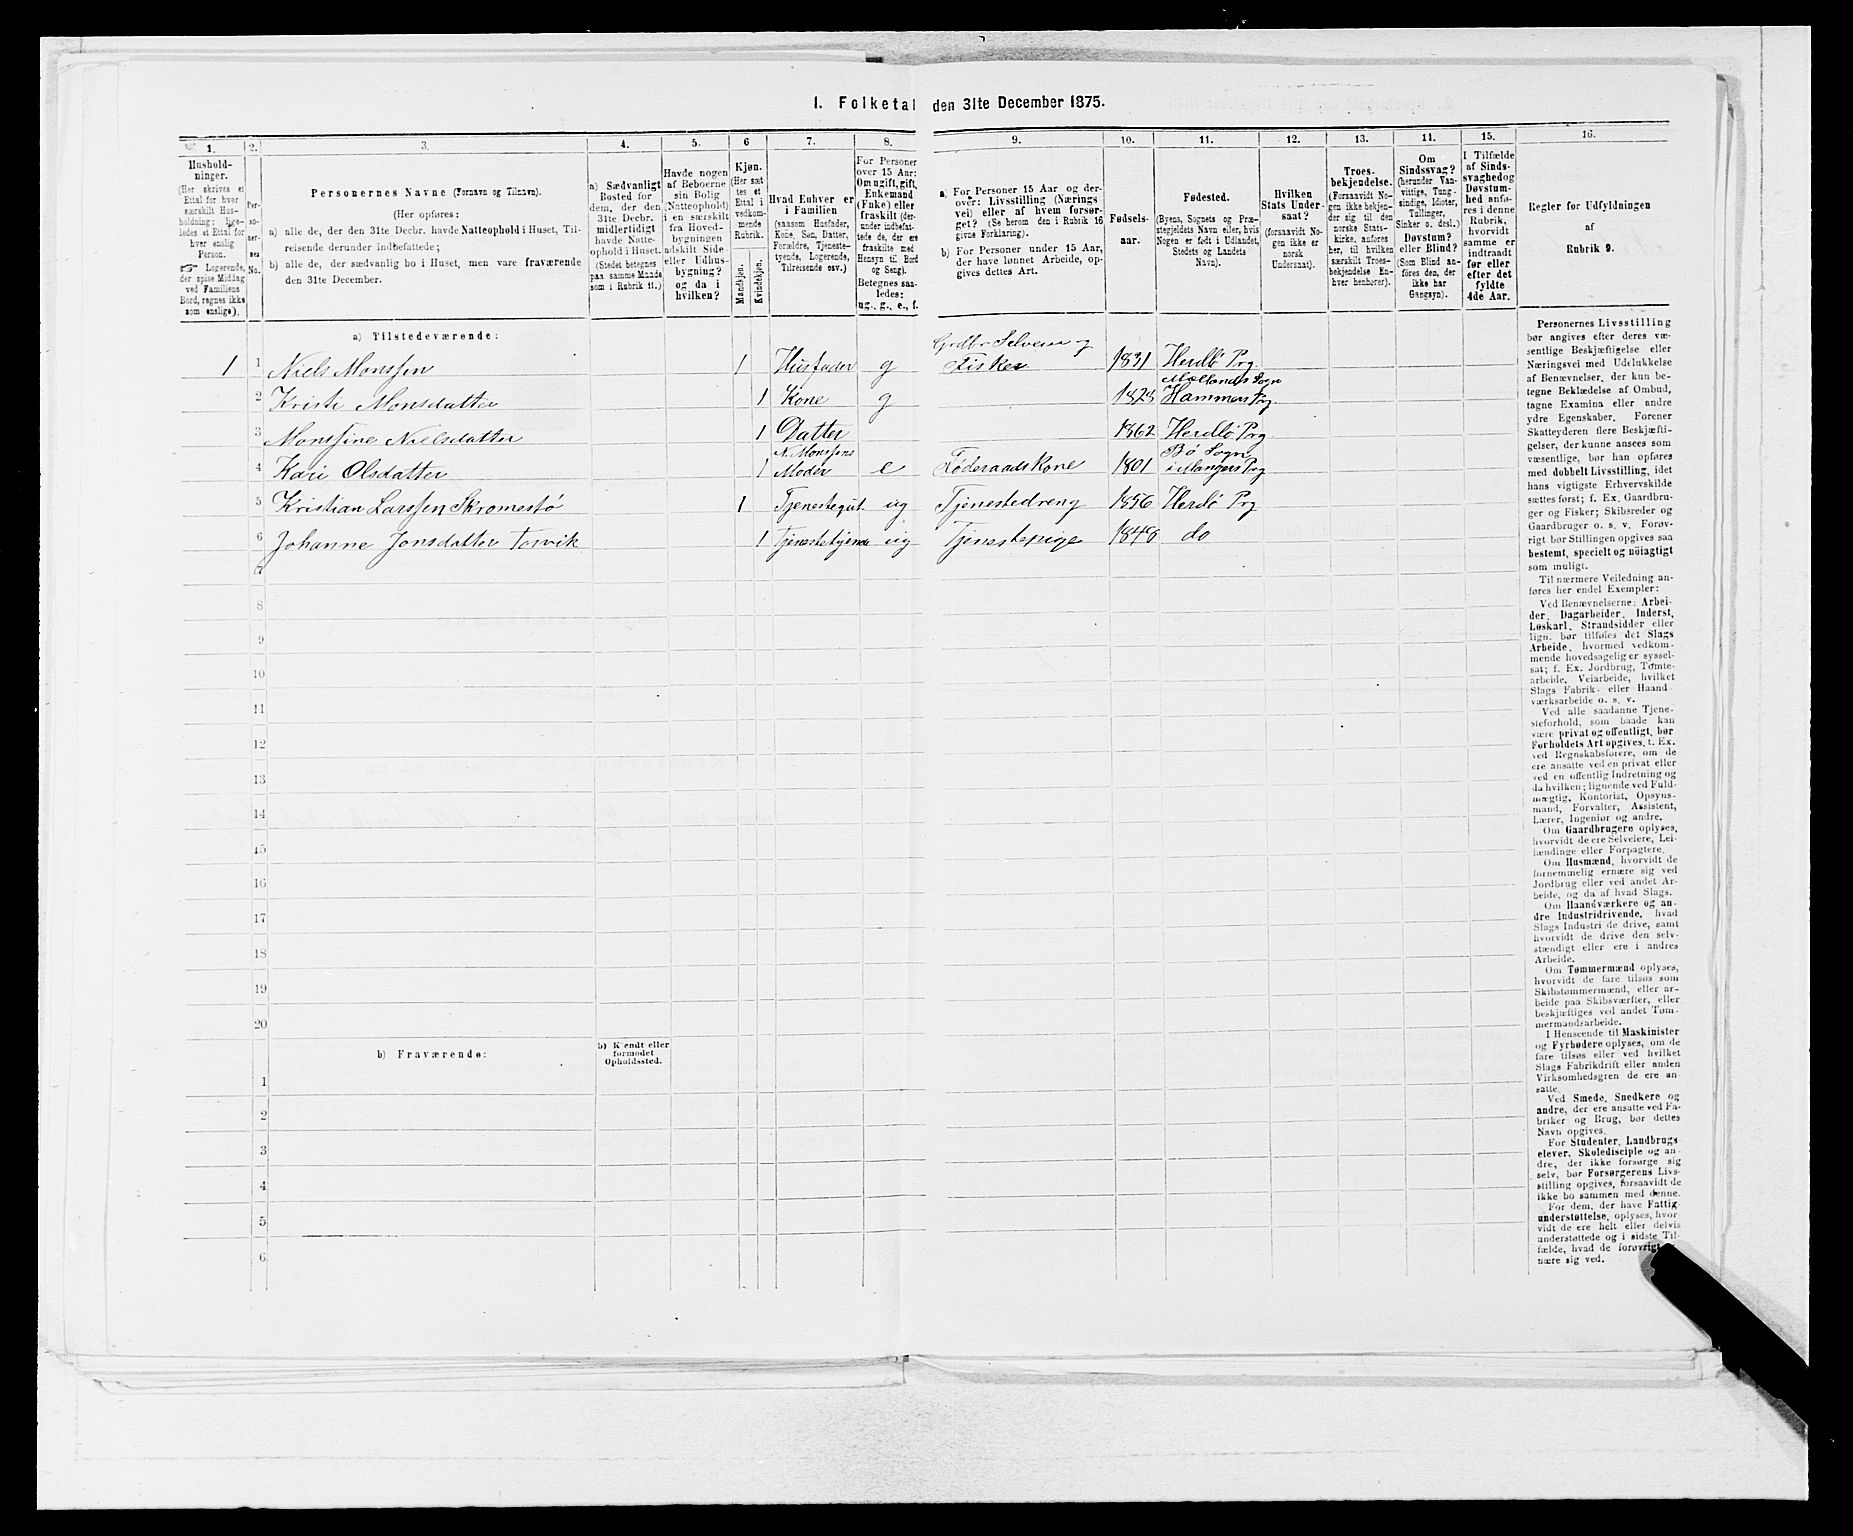 I. Folketal den 31te December 1875.
1.
Hushold-
ninger.
(Her skrives et
Ettal for hver
særskilt Hus-
holdning; lige-
ledes et Ettal for
hver enslig
Person.
☞ Logerende,
der spise Middag
ved Familiens
Bord, regnes ikke
som enslige).
2.
Per-
so-
ner-
nes
No.
3.
Personernes Navne (Fornavn og Tilnavn).
(Her opføres:
a) alle de, der den 31te Decbr. havde Natteophold i Huset, Til-
reisende derunder indbefattede;
b) alle de, der sædvanlig bo i Huset, men vare fraværende
den 31te December.
4.
a) Sædvanligt
Bosted for
dem, der den
31te Decbr.
midlertidigt
havde Natte-
ophold i Huset.
(Stedet betegnes
paa samme Maade
som i Rubrik 11.)
5.
Havde nogen
af Beboerne
sin Bolig
(Natteophold)
i en særskilt
fra Hoved-
bygningen
adskilt Side
eller Udhus-
bygning?
og da i
hvilken?
6
Kjøn.
(Her sæt
tes et
Ettal i
vedkom-
mende
Rubrik.
Mandkjøn.
Kvindekjøn.
7.
Hvad Enhver er
i Familien
(saasom Husfader,
Kone, Søn, Datter,
Forældre, Tjeneste-
tyende, Logerende,
Tilreisende osv.)
8.
For Personer
over 15 Aar:
Om ugift, gift,
Enkemand
(Enke) eller
fraskilt (der-
under indbefat-
tede de, der ere
fraskilte med
Hensyn til Bord
og Seng).
Betegnes saa-
ledes:
ug., g., e., f.
9.
a. For Personer 15 Aar og der-
over: Livsstilling (Nærings
vei) eller af hvem forsør-
get? (Se herom den i Rubrik 16
givne Forklaring).
b) For Personer under 15 Aar,
der have lønnet Arbeide, op-
gives dettes Art.
10.
Fødsels-
aar.
11.
Fødested.
(Byens, Sognets og Præ-
stegjeldets Navn eller, hvis
Nogen er født i Udlandet,
Stedets og Landets
Navn).
12.
Hvilken
Stats Under-
saat?
(forsaavidt No-
gen ikke er
norsk
Undersaat).
13.
Troes-
bekjendelse.
(Forsaavidt No-
gen ikke bekjen-
der sig til den
norske Stats-
kirke, anføres
her, til hvilken
særskilt Troes-
bekjendelse En-
hver henhører).
14.
Om
Sindssvag?
(herunder Van-
vittige, Tung-
sindige, Idioter,
Tullinger,
Sinker o. desl.)
Døvstum?
eller Blind?
(Som Blind an-
føres den, der
ikke har
Gangsyn).
15.
I Tilfælde
af Sinds-
svaghed og
Døvstum-
hed anfø-
res i denne
Rubrik,
hvorvidt
samme er
indtraadt
før eller
efter det
fyldte
4de Aar.
16.
Regler for Udfyldningen
af
Rubrik 9.
a) Tilstedeværende:
Grdbr Selveier og
1 1 Niels Monssen 1 Husfader g Fisker 1831 Herdlø Prg.
Mællands Sogn
2 Kristi Monsdatter 1 Kone g 1828 Hammers Prg.
3 Monssine Nielsdatter 1 Datter 1862 Herdlø Prg
N. Monssens Bø Sogn
4 Kari Olsdatter 1 Moder e Føderaadskone 1801 i Manger Prg
5 Kristian Larssen Skromestø 1 Tjenestegut ug Tjenestedreng 1856 Herdlø Prg
6 Johanne Jonsdatter Torvik 1 Tjenestetjende ug Tjenestepige 1848 do
7
8
9
10
11
12
13
14
15
16
17
18
19
20
b) Fraværende:
b) Kjendt eller
formodet
Opholdssted.
1
2
3
4
5
6
Personernes Livsstilling
bør angives efter deres væ-
sentlige Beskjæftigelse eller
Næringsvei med Udelukkelse
af Benævnelser, der kun be-
tegne Beklædelse af Ombud,
tagne Examina eller andre
ydre Egenskaber. Forener
Skatteyderen flere Beskjæfti-
gelser, der kunne ansees som
væsentlige, bør han opføres
med dobbelt Livsstilling, idet
hans vigtigste Erhvervskilde
sættes først; f. Ex. Gaardbru-
ger og Fisker; Skibsreder og
Gaardbruger o. s. v. Forøv-
rigt bør Stillingen opgives saa
bestemt, specielt og nøiagtigt
som muligt.
Til nærmere Veiledning an-
føres her endel Exempler:
Ved Benævnelserne: Arbei-
der, Dagarbeider, Inderst,
Løskarl, Strandsidder eller
lign. bør tilføies det Slags
Arbeide, hvormed vedkom-
mende hovedsagelig er syssel-
sat; f. Ex. Jordbrug, Tømte-
arbeide, Veiarbeide, hvilket
Slags Fabrik- eller Haand
værksarbeide o. s. v.
Ved alle saadanne Tjene-
steforhold, som baade kan
være privat og offentligt, bør
Forholdets Art opgives, t. Ex.
ved Regnskabsførere, om de
ere ansatte ved en privat eller
ved en offentlig Indretning og
da hvilken; lignende ved Fuld-
mægtig, Kontorist, Opsyns-
mand, Forvalter, Assistent,
Lærer, Ingeniør og andre.
Om Gaardbrugere oplyses,
hvorvidt de ere Selveiere, Lei-
lændinge eller Forpagtere.
Om Husmænd, hvorvidt de
fornemmelig ernære sig ved
Jordbrug eller ved andet Ar-
beide, og da af hvad Slags.
Om Haandværkere og an-
dre Industridrivende, hvad
Slags Industri de drive, samt
hvorvidt de drive den selv-
stændigt eller ere i andres
Arbeide.
Om Tømmermænd oplyses,
hvorvidt de fare tilsøs som
Skibstømmermænd, eller ar-
beide paa Skibsværfter, eller
beskjæftiges ved andet Tøm-
mermandsarbeide.
I Henseende til Maskinister
og Fyrbødere oplyses, om de
fare tilsøs eller ved hvilket
Slags Fabrikdrift eller anden
Virksomhedsgren de ere an-
satte.
Ved Smede, Snedkere og
andre, der ere ansatte ved Fa-
briker og Brug, bør dettes
Navn opgives.
For Studenter, Landbrugs-
elever, Skoledisciple og an-
dre, der ikke forsørge sig
selv, bør Forsørgerens Livs-
stilling opgives, forsaavidt de
ikke bo sammen med denne.
For dem, der have Fattig-
understøttelse, oplyses, hvor-
vidt de ere helt eller delvis
understøttede og i sidste Til-
fælde, hvad de forøvrigt
nære sig ved.